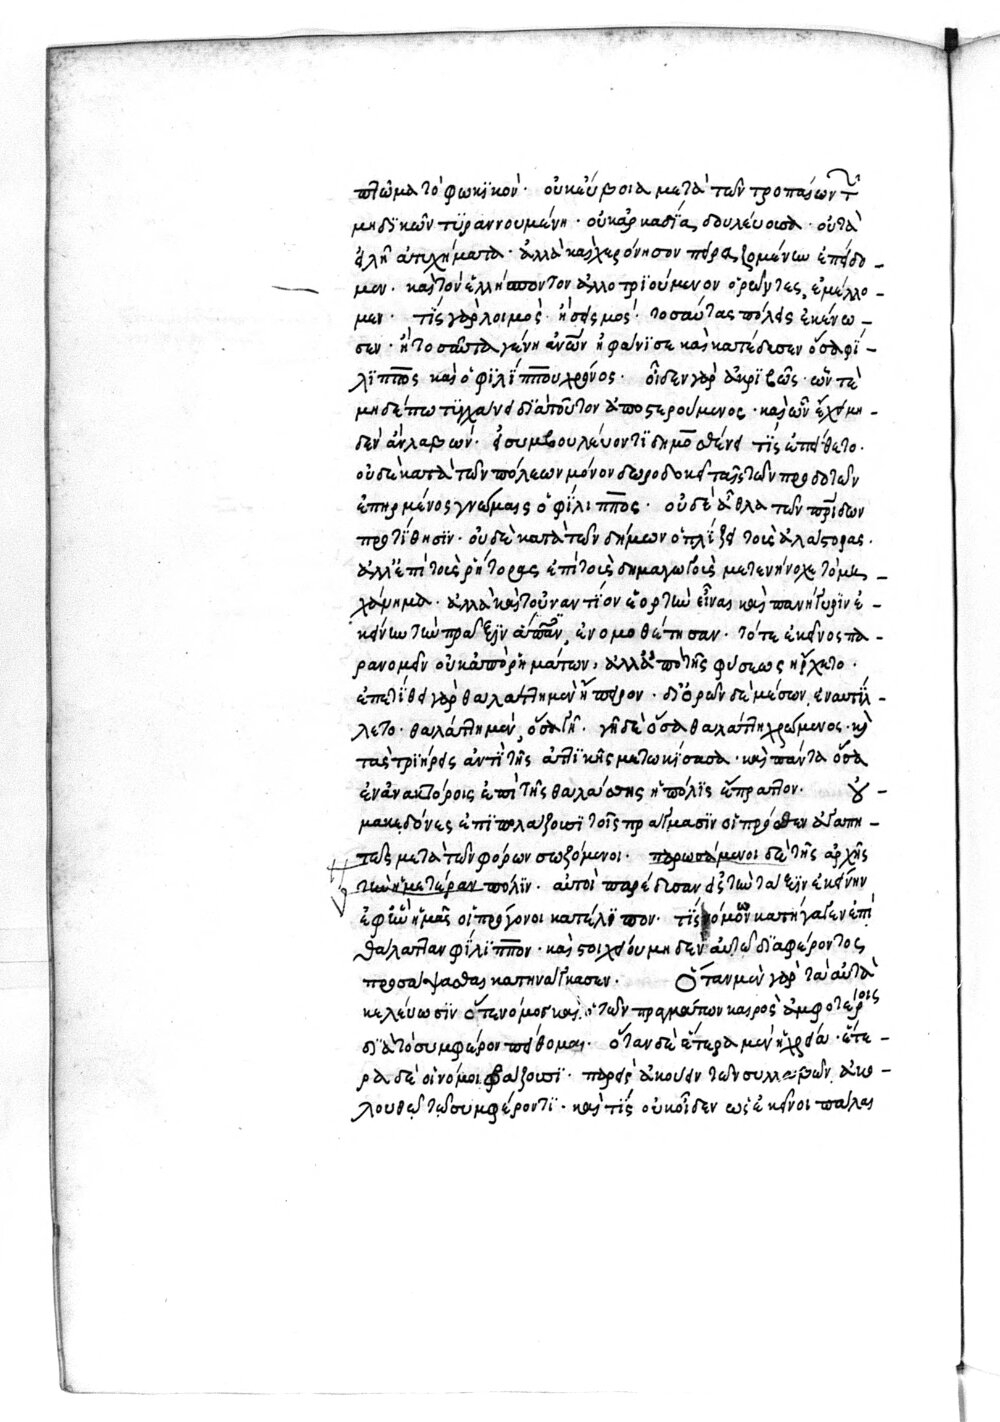 πτῶμα τὸ φωκικόν· οὐκ εὔβοια μετὰ τῶν τροπαίων τ
μηδικῶν τυραννουμένη· οὐκ ἀρκαδία δουλεύουσα· οὐ τὰ
ἀτυχήματα· ἀλλὰ καὶ χερόνησον ἐπείδο-
μεν· καὶ τὸν ἑλλήσποντον ἀλλοτριούμενον ὁρῶντες, ἐμέλλο-
μεν· τίς γὰρ λοιμὸς· ἢ σεισμὸς· τοσαύτας πόλεις ἐκένω-
σεν· ἢ τοσαῦτα γένη ἀνων ἠφάνισε καὶ κατέδυσεν ὅσα φί-
λιππος καὶ ὁ φιλίππου χρόνος· οἶδεν γὰρ ἀκριβῶς· ὧν τε
μηδέπω τυγχάνει διὰ τοῦτον ἀποστερούμενος· καὶ ὧν ἔχει μη-
δὲν ἂν λαβών· εἰ συμβουλεύοντι δημοσθένει τίς ἐπείθετο·
οὐδὲ κατὰ τῶν πόλεων μόνον δωροδοκεῖ ταῖς τῶν προδοτῶν
ἐπηρμένος γνώμαις ὁ φίλιππος· οὐδὲ ἆθλα τῶν πρίδων
προτίθησιν· οὐδὲ κατὰ τῶν δήμων ὁπλίζει τοὺς ἀλάστορας·
ἀλλ' ἐπὶ τοὺς ῥήτορας ἐπὶ τοὺς δημαγωγοὺς μετενήνοχε τὸ με-
χάνημα· ἀλλὰ καὶ τοὐναντίον ἑορτὴν εἶναι καὶ πανήγυριν ἐ-
κείνων τὴν πρᾶξιν ἐνομοθέτησαν· τότε ἐκεῖνος πα-
ρανομεῖν οὐκ ἀπὸ ῥημάτων, ἀλλ' ἀπὸ τῆς φύσεως ἤρχετο·
ἐπετίθει γὰρ θαλάττη μὲν ἤπειρον· δι' ὀρῶν δὲ μέσων ἐναυτίλ-
λετο· θαλάττη μέν, ὅσα γῆ· γῆ δὲ ὅσα θαλάττη χρώμενος· κ
τὰς τριήρεις ἀντὶ τῆς ἀττικῆς μετῳκίσασα· καὶ πάντα ὅσα
ἐν ἀνακτόροις ἐπὶ τῆς θαλάσσης ἡ πόλις ἔπραττον· οὐ-
μακεδόνες ἐπιπολάζουσι τοῖς πράγμασιν οἱ πρόσθεν ἀγαπη-
τῶς μετὰ τῶν φόρων σωζόμενοι· παρωσάμενοι δὲ τῆς ἀρχῆς
τὴν ἡμετέραν πόλιν· αὐτοὶ παρέδυσαν εἰς τὴν τάξιν ἐκείνην
ἐφ' ἣν ἡμᾶς οἱ πρόγονοι κατέλιπον· τίς νόμον κατήγαγεν ἐπὶ
θάλατταν φίλιππον· καὶ στοιχείου μηδὲν αὐτῷ διαφέροντος
προσάψασθαι κατηνάγκασεν· ὅταν μὲν γὰρ ταὐτὰ
κελεύωσιν ὅ τε νόμος καὶ ὁ τῶν πραγμάτων καιρὸς ἀμφοτέροις
διὰ τὸ συμφέρον πείθομαι· ὅταν δὲ ἕτερα μὲν ἡ χρεία· ἕτε-
ρα δὲ οἱ νόμοι βιάζουσι· παρεὶς ἀκούειν τῶν συλλαβῶν ἀκο-
λουθεῖ τῷ συμφέροντι· καὶ τίς οὐκ οἶδεν ὡς ἐκεῖνοι πάλαι